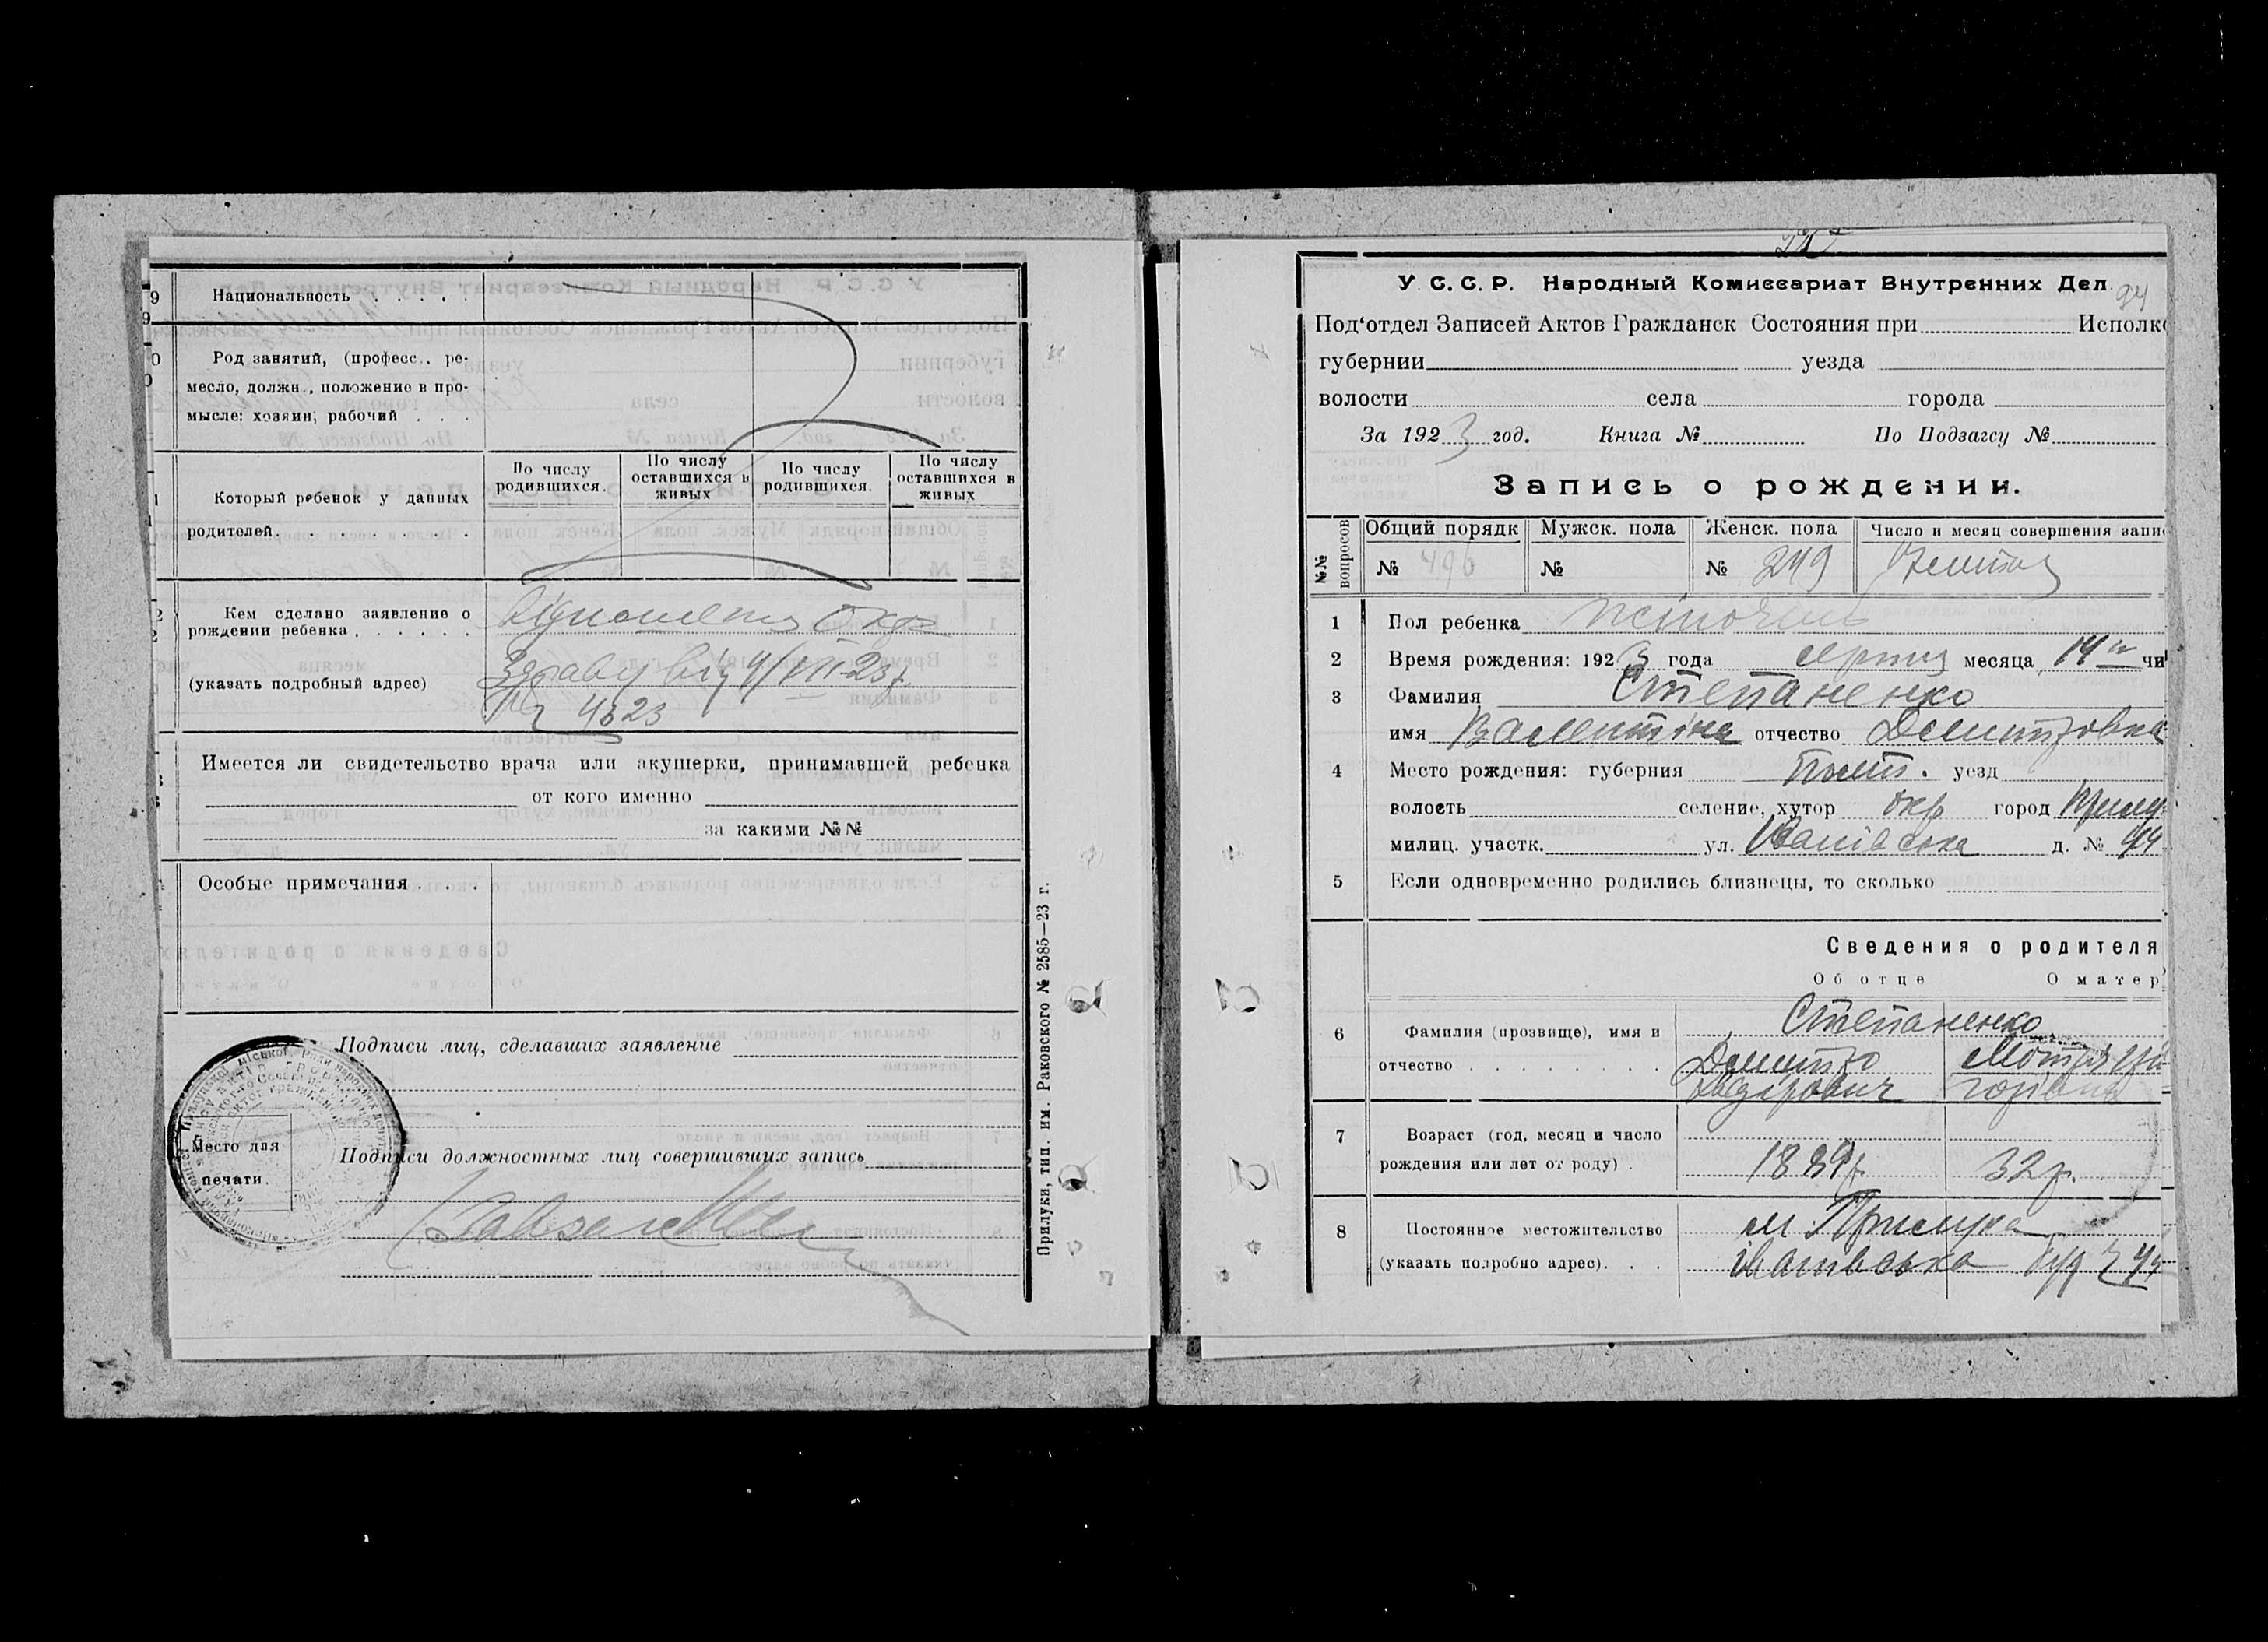 Национальность . . . . .
Род занятий, (професс., ре-
месло, должн., положение в про-
мысле: хозяин, рабочий . . .
Который ребенок у данных
родителей. . . . . . . .
По числу родившихся.
По числу оставшихся в живых
По числу родившихся.
По числу оставшихся в живых
Кем сделано заявление о
рождении ребенка . . . . . .
(указать подробный адрес)
Здраву від 4/VIII-23 р.
№ 4823
Имеется ли свидетельство врача или акушерки, принимавшей ребенка
от кого именно
за какими №№
Особые примечания . . .
Подписи лиц, сделавших заявление
Место для
печати.
Подписи должностных лиц совершивших запись
Прилуки, тип. им. Раковского № 2585—23 г.
94
У. С. С. Р. Народный Комиссариат Внутренних Дел
Под'отдел Записей Актов Гражданск Состояния при Исполк
губернии уезда
волости села города
За 1923 год. Книга № По Подзагсу №
Запись о рождении.
№№ вопросов
Общий порядк Мужск. пола Женск. пола Число и месяц совершения запи
№ 496 № № 249
1 Пол ребенка жіночень
2 Время рождения: 1923 года серпня месяца 14 чи
3 Фамилия Степаненко
имя Валентіна отчество Дмитровна
4 Место рождения: губерния Полт. уезд
волость селение, хутор окр город Прилу
милиц. участк. ул. Іванівська д. № 44
5 Если одновременно родились близнецы, то сколько
Сведения о родителя
Об отце О матер
6 Фамилия (прозвище), имя и
отчество . . . . . . . .
Степаненко
Дмитро Мотря Гри
горівна
7 Возраст (год, месяц и число
рождения или лет от роду) .
1889 р. 32 р.
8 Постоянное местожительство
(указать подробно адрес). . .
м. Прилука
Іванівська буд